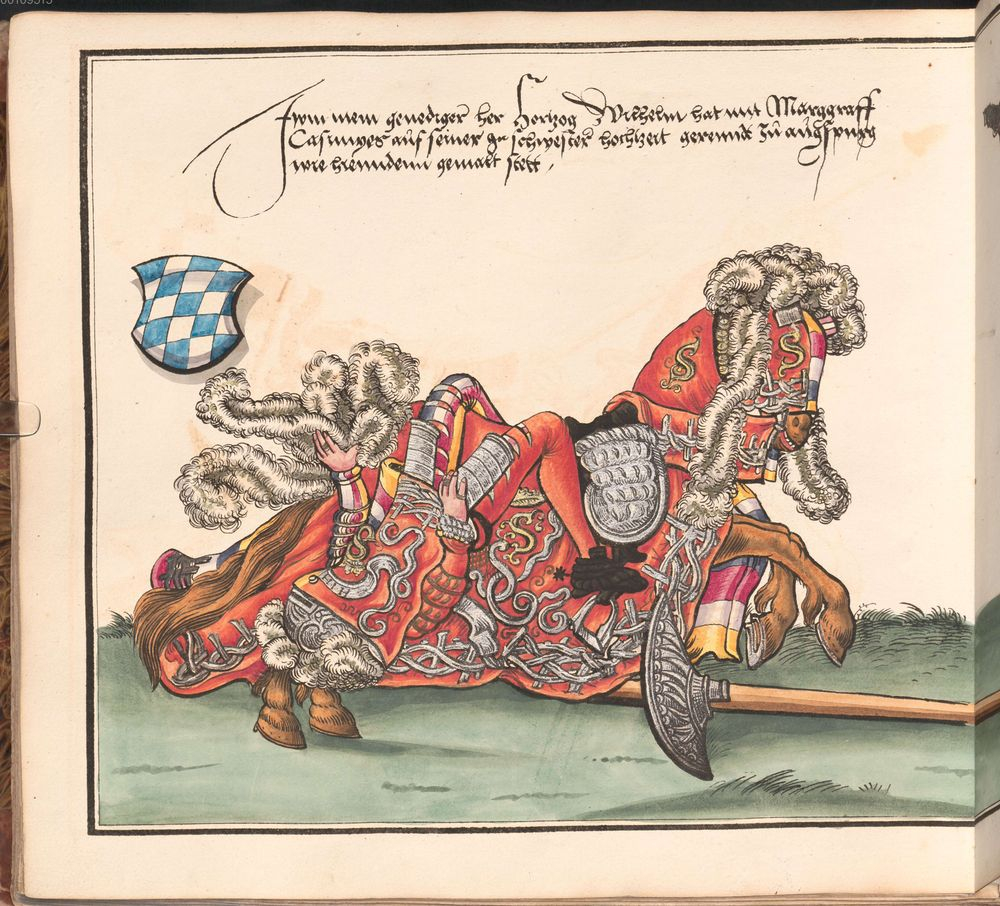 00109515
Item mein genediger her Hertzog Wilhelm hat mit Marggraff
Casimyes auf seiner gn schwester hochzeit gerennd zu augspurg
wie hienndenn gemalt stett
S
S
S
S